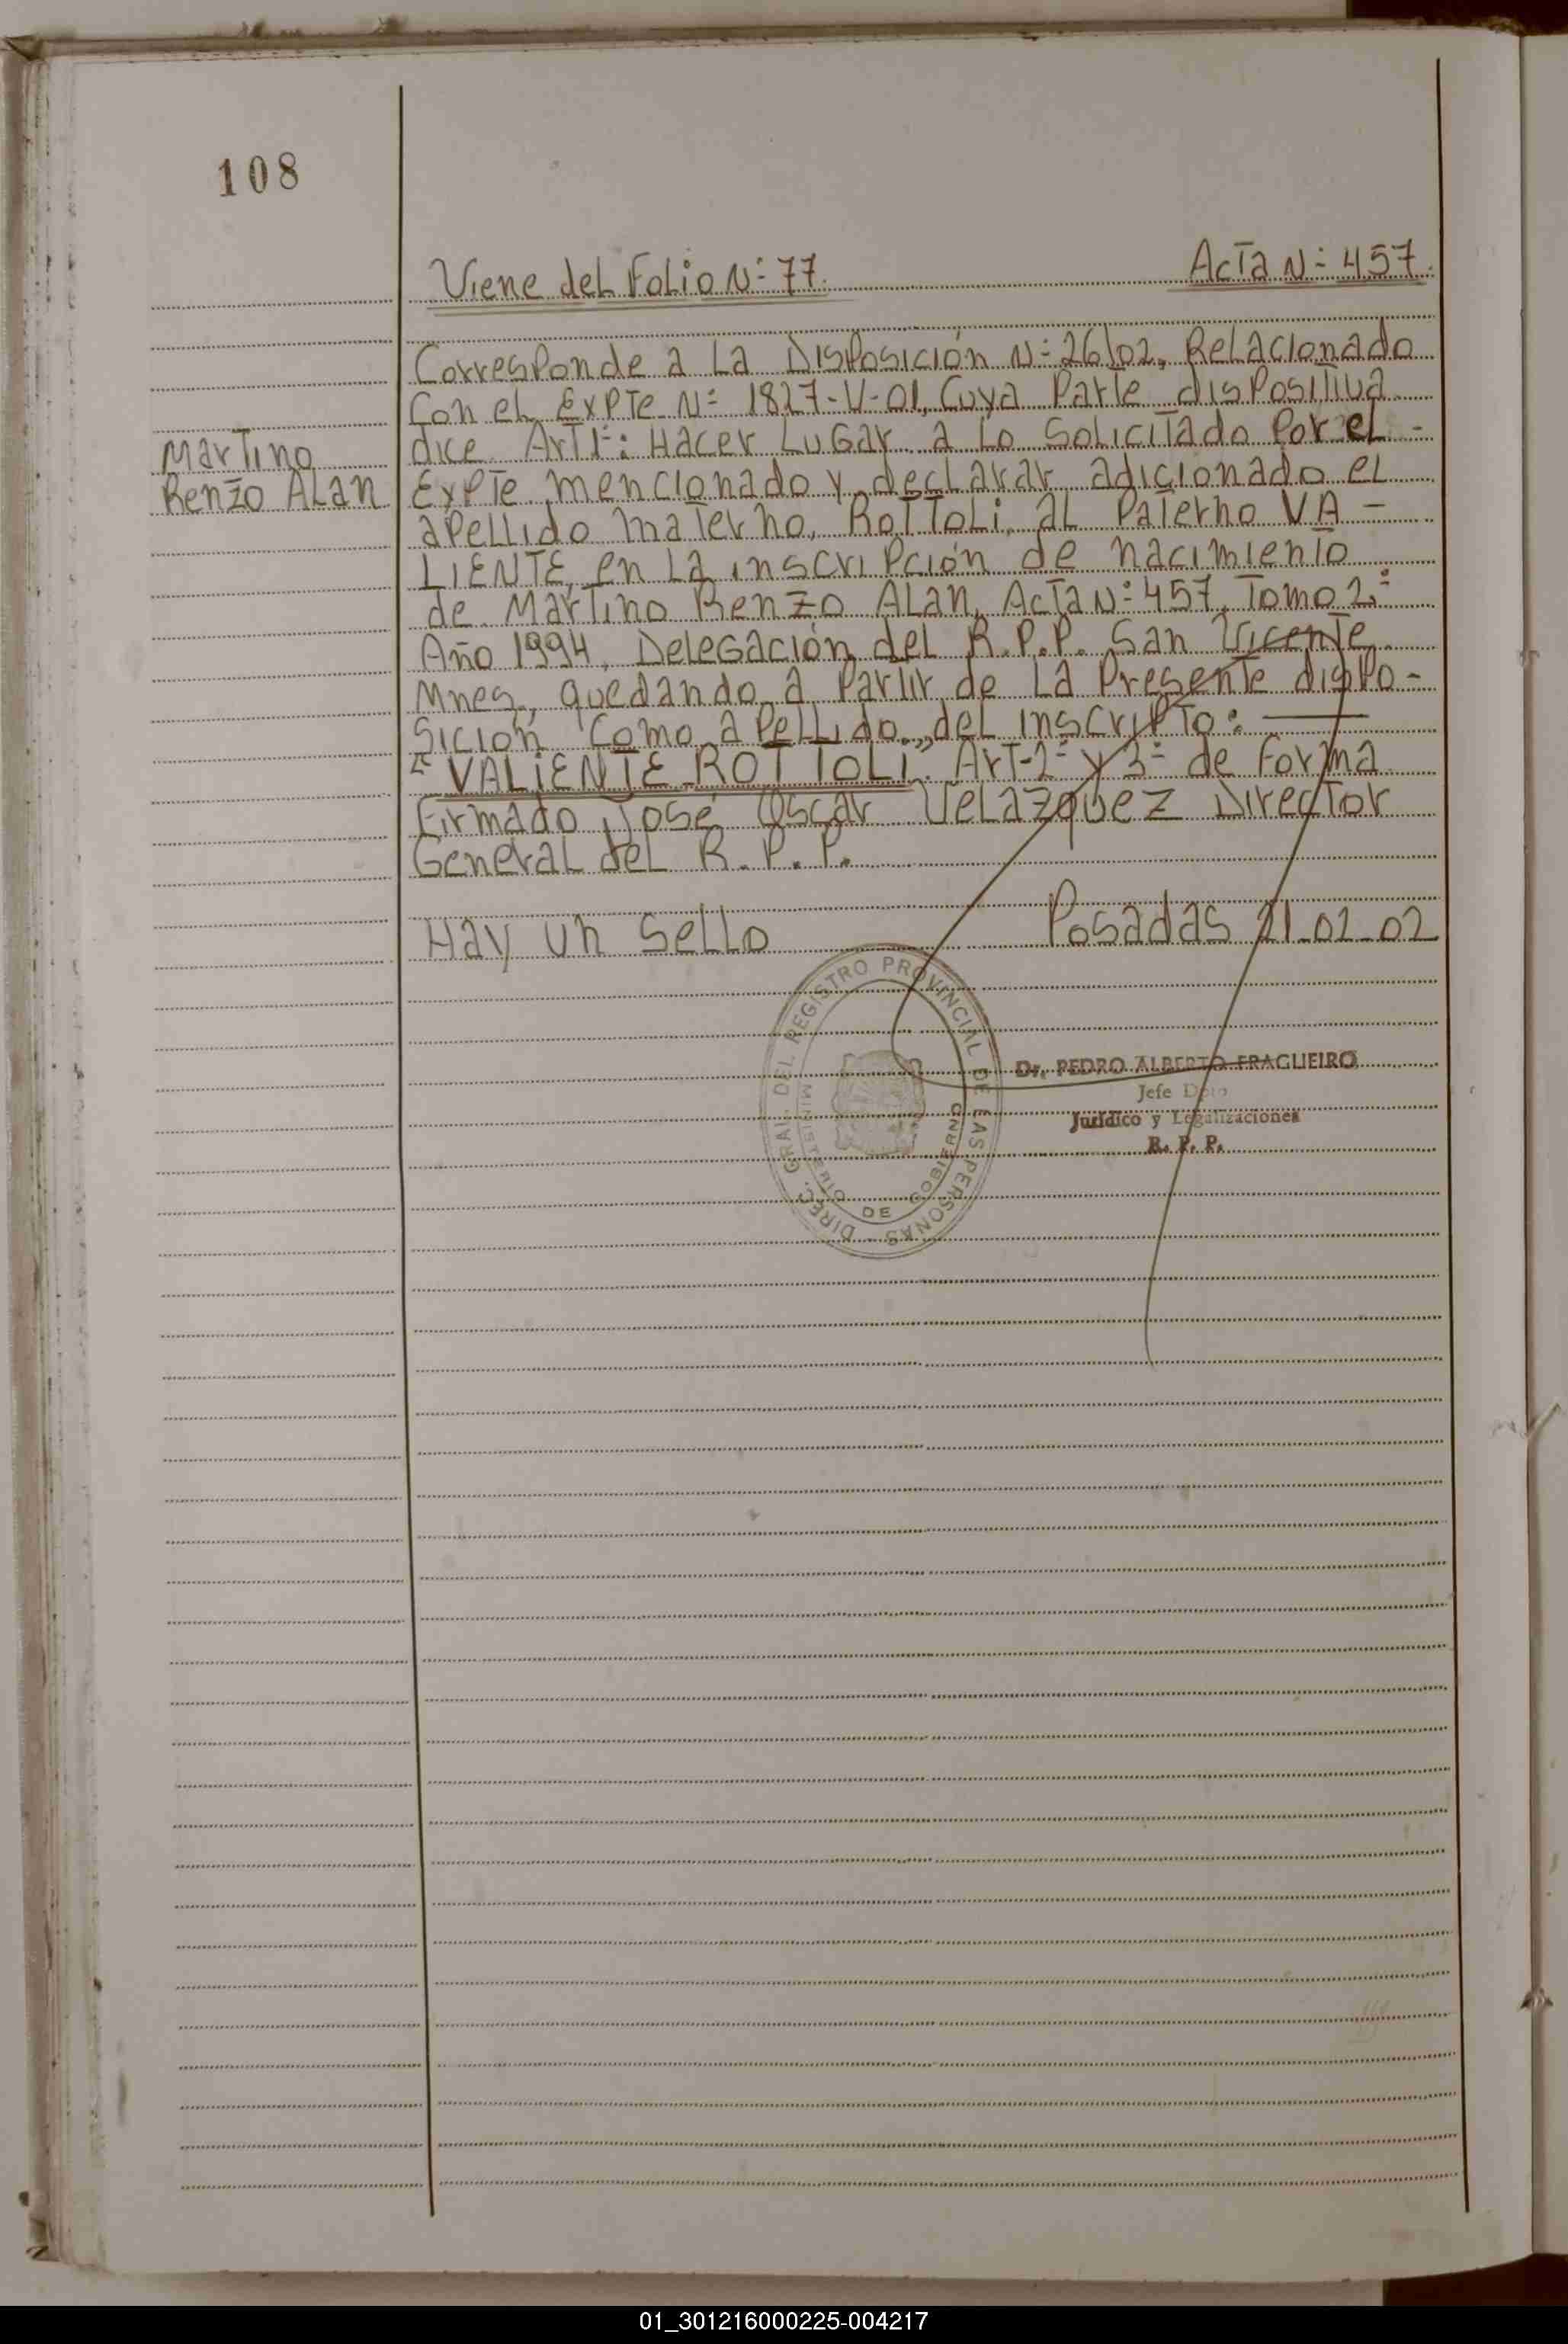 108
Viene del Folio N= 77. Acta N= 457.
Corresponde a La Disposición N= 26/02, Relacionado
Con el Expte N= 1827-V-01, Cuya Parte dispositiva
dice Art 1=: Hacer Lugar a Lo Solicitado Por el -
Martino
Renzo Alan
Expte mencionado y declarar adicionado el
apellido materno, Rottoli, al Paterno VA -
LIENTE, en La inscripción de nacimiento
de Martino Renzo Alan, Acta N= 457, Tomo 2=
Año 1994, Delegación del R.P.P. San Vicente
Mnes, quedando a Partir de La Presente dispo-
sición como apellido del inscripto:
"VALIENTE ROTTOLI". Art-2= y 3= de forma
Firmado José Oscar Velazquez Director
General del R.P.P.
Hay un Sello Posadas 21-02-02
DIREC. GRAL. DEL REGISTRO PROVINCIAL DE LAS PERSONAS -
MINISTERIO DE GOBIERNO
Dr. PEDRO ALBERTO FRAGUEIRO
Jefe Dpto
Jurídico y Legalizaciones
R. P. P.
01_301216000225-004217